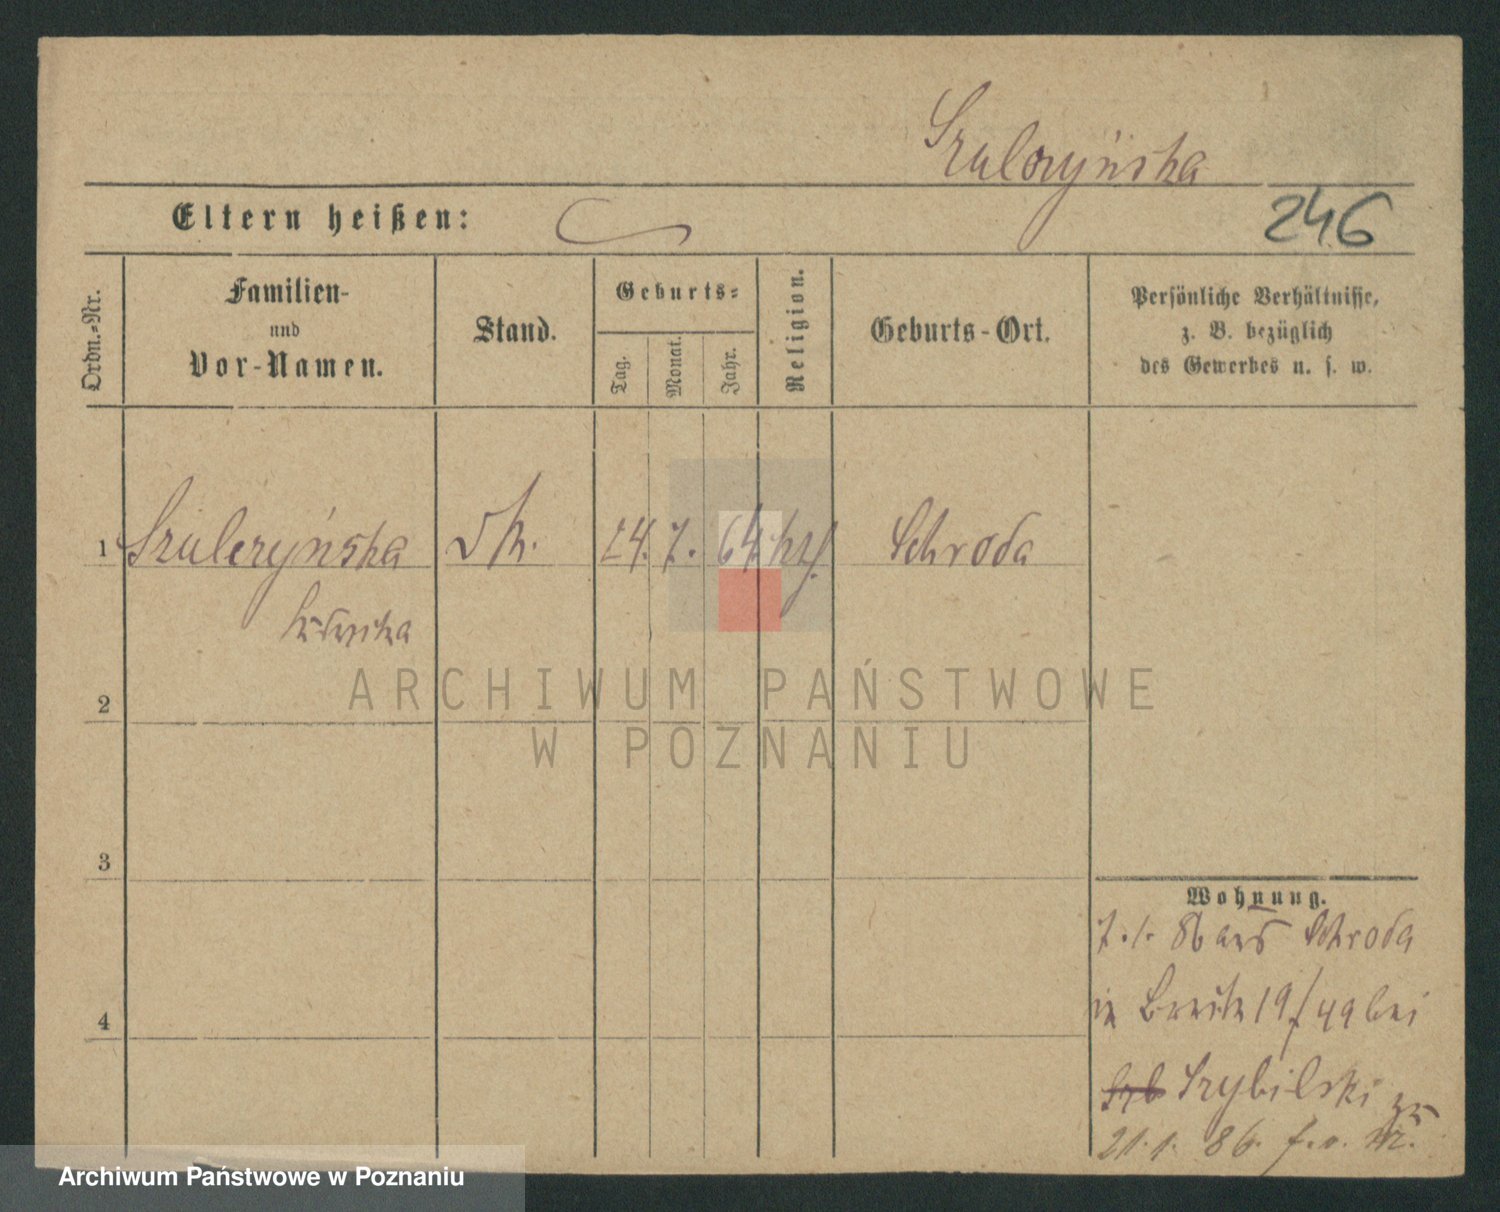 Szulczyńska
Eltern heißen:
246
Ordn.-Nr.
Familien-
und
Vor-Namen.
Stand.
Geburts-
Tag.
Monat.
Jahr.
Religion.
Geburts-Ort.
Persönliche Verhältnisse,
z. B. bezüglich
des Gewerbes u. s. w.
1 Szulczyńska 24. 7. 64. kth. Schroda
Ludwika
2
3
4
Wohnung.
7. 1. 86 aus Schroda
in Breite 19/49 bei
Szb Szybilski zu
21. 1. 86.
ARCHIWUM PAŃSTWOWE
W POZNANIU
Archiwum Państwowe w Poznaniu